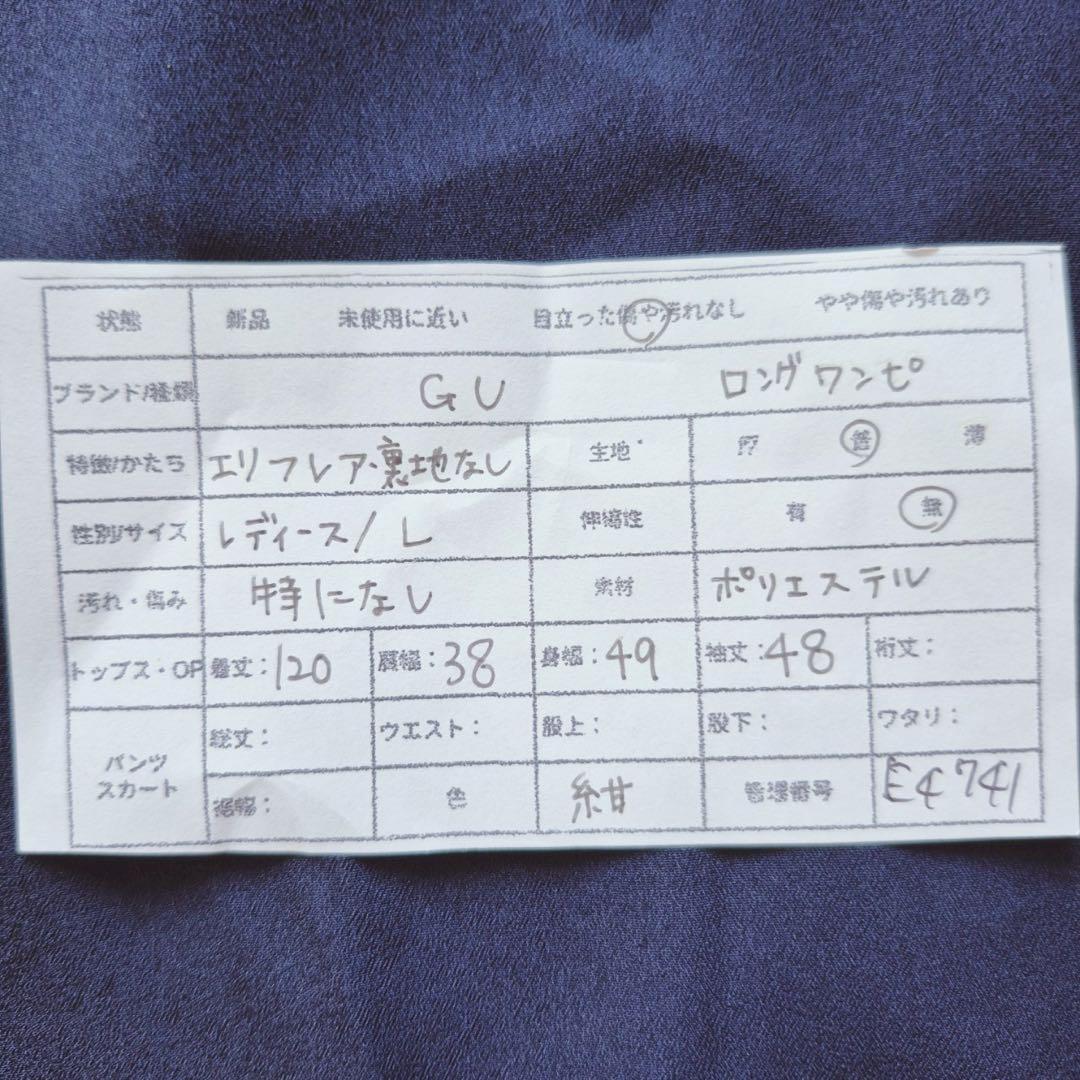 状態 新品 未使用に近い 目立った傷や汚れなし やや傷や汚れあり
ブランド/種類 GU ロングワンピ
特徴/かたち エリフレア・裏地なし 生地 厚 普 薄
性別/サイズ レディース/L 伸縮性 有 無
汚れ・傷み 特になし 素材 ポリエステル
トップス・OP 着丈:120 肩幅:38 身幅:49 袖丈:48 裄丈:
パンツ スカート 総丈: ウエスト: 股上: 股下: ワタリ:
裾幅: 色 紺 管理番号 E4741